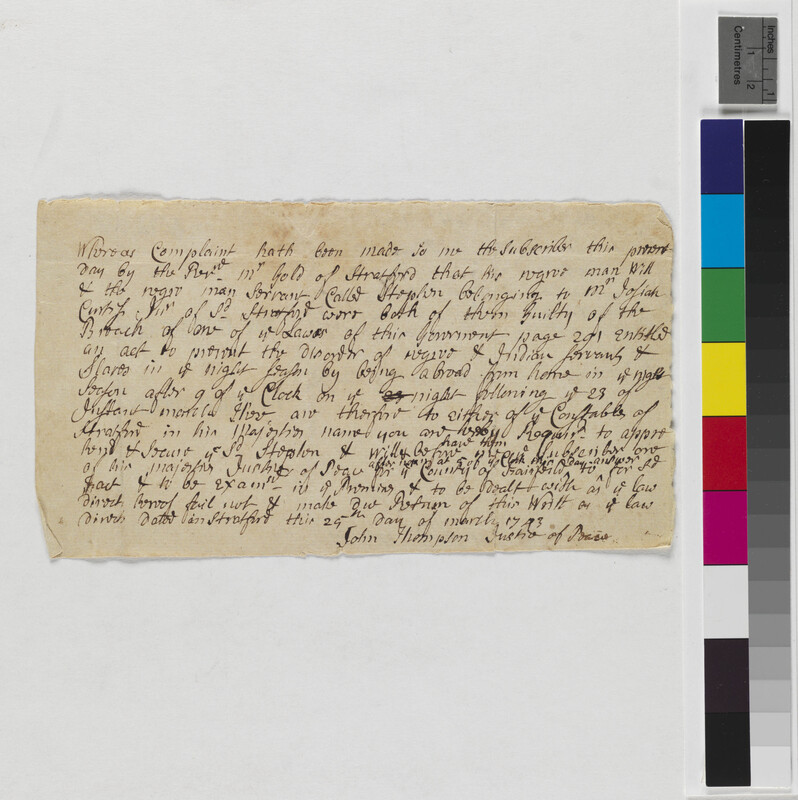 Inches
1
Centimetres
1
2
Whereas Complaint hath been made to me the Subscriber this present
day by the Revrd mr Gold of Stratford that his negro man Will
& the negro man Servant Called Stephen belonging to mr Josiah
Curtiss of Sd Stratford were both of them Guilty of the
Breach of one of ye Lawes of this Goverment page 291 Entitled
an act to prevent the disorder of negro & Indian servants &
Slaves in ye night season by being abroad from home in ye night
Season after 9 of ye Clock on ye night following ye 23 of
Instant march These are therefore to either of ye Constables of
Stratford in his Majesties name you are hereby Requird to appre
hend & Secure ye Sd Stephen & Will & have them before me ye Subscriber one
of his majesties Justices of Peace for ye County of Fairfield to answer for Sd
fact & to be Examd in ye Premises & to be Dealt with as ye law
direct hereof fail not & make Due Return of this Writ as ye law
Direct Dated in Stratford this 25th day of march 1743
John Thompson Justice of Peace